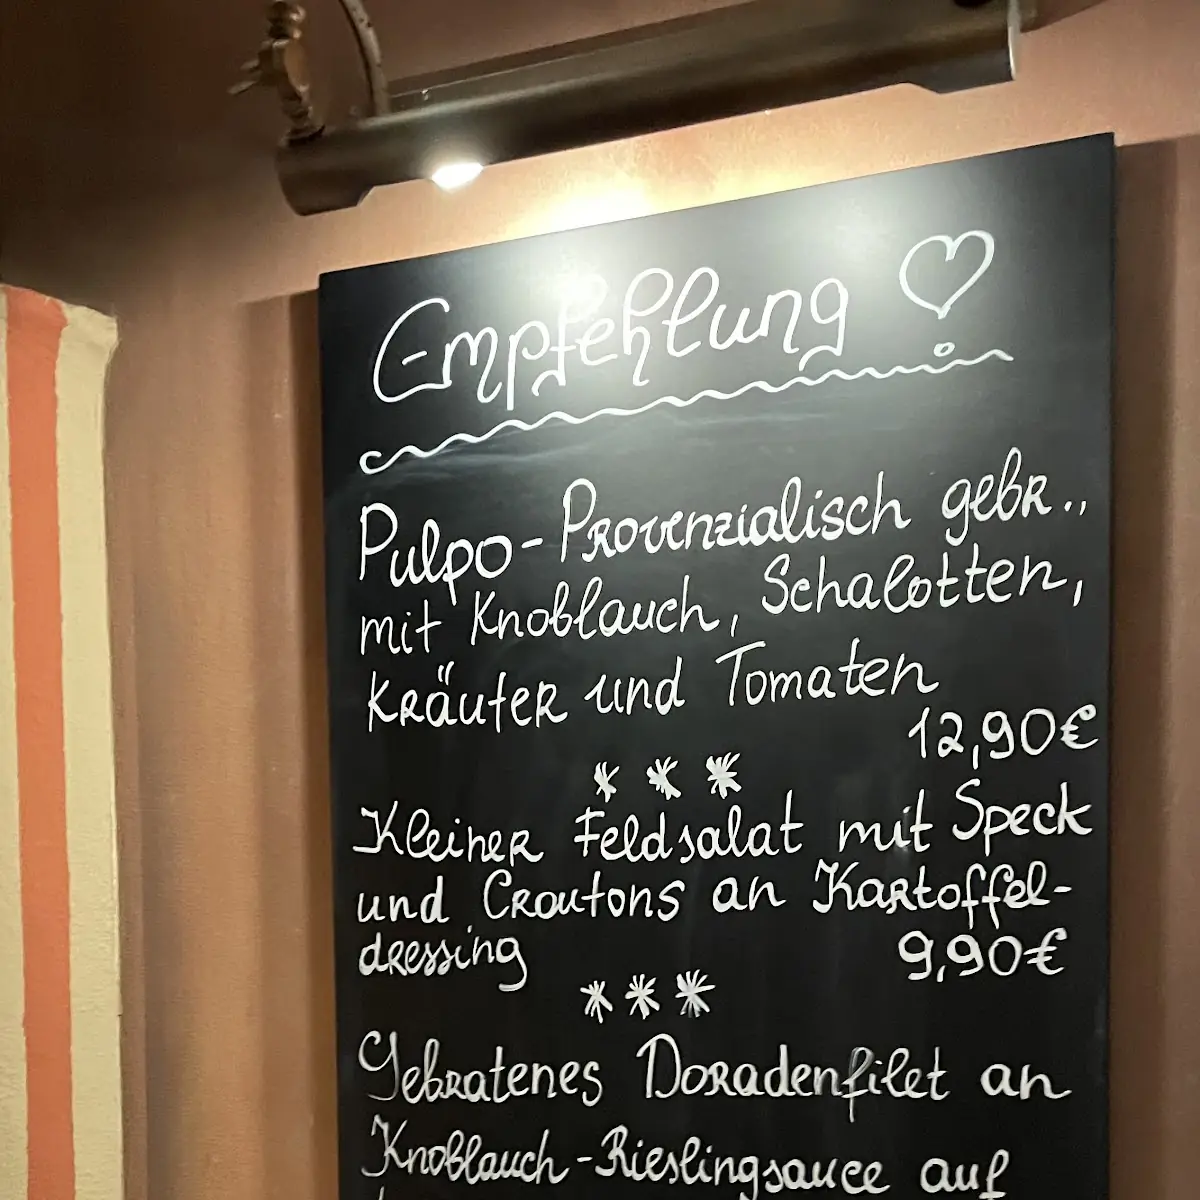 Empfehlung ♡
Pulpo-Provenzialisch gebr.,
mit Knoblauch, Schalotten,
Kräuter und Tomaten
12,90€
* * *
Kleiner Feldsalat mit Speck
und Croutons an Kartoffel-
dressing 9,90€
* * *
Gebratenes Doradenfilet an
Knoblauch-Rieslingsauce auf